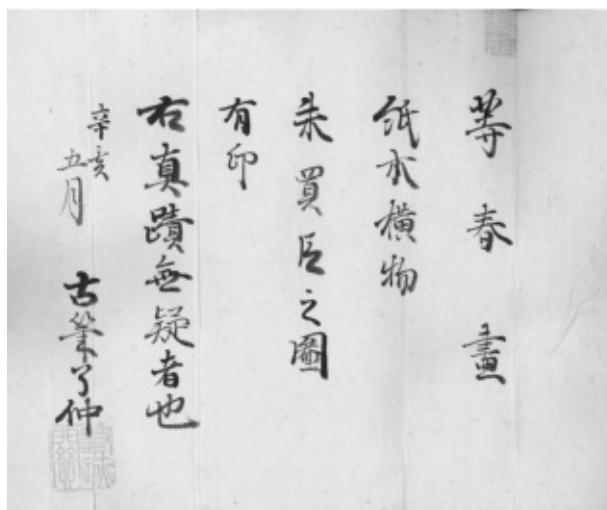 等春 畫
紙本横物
朱買臣之圖
有印
右真蹟無疑者也
辛亥
五月
古筆了仲